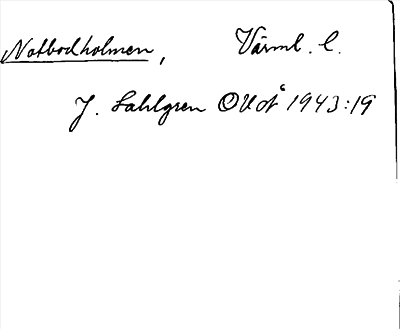 Notbodholmen, Värml. l.
J. Sahlgren OUÅ 1943:19